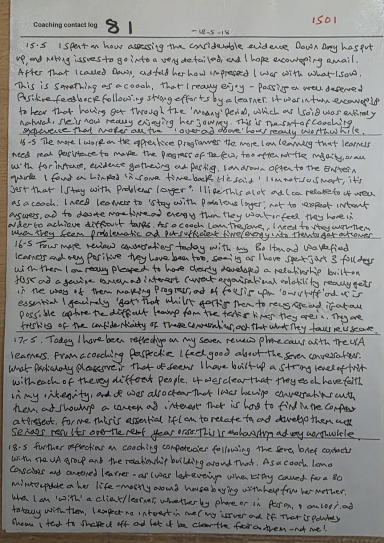 Coaching contact log 81 -18-5-18 1501
15.5 I spent an hour assessing the considerable evidence Dawn Day has put
up, and noting issues to go into a very detailed, and I hope encouraging email.
After that I called Dawn, and told her how impressed I was with what I saw.
This is something as a coach, that I really enjoy - positive and well deserved
Positive feedback following strong efforts by a learner. It was in turn encouraging
to hear that having got through the 'muddy' period, which as I said was entirely
natural, she is now really enjoying her journey. This is the sort of coaching
experience that makes all the 'over and above' hours really worthwhile.
16-5 The more I work on the apprentice programmes the more I am learning that learners
need real persistence to make the progress of the few, too often not the majority,
with, for instance, evidence gathering and posting. I am drawn often to the Einstein
quote I found on Linked in some time back. He said 'I'm not so smart, it's
just that I stay with Problems longer'. I like this a lot and can relate to it even
as a coach. I need learners to 'stay with' Problems longer, not to expect instant
answers, and to devote more time and energy than they want or feel they have in
order to achieve difficult tasks. As a coach I am the same, I need to stay with them
when they seem problematic and put sufficient time/energy into them to get a turnover
16-5 Four more review conversations today with my
learners and very positive they have been too, seeing as I have spent just 3 full days
with them I am really pleased to have clearly developed a relationship built on
trust and a genuine concern and interest. Current organisational volatility really gets
in the way of them making progress, and of focussing on 'own stuff' and it is
essential I genuinely 'get' that whilst getting them to recognise and if at all
possible capture the different learning from the testing times they are in. They are
trusting of the confidentiality of these conversations, and that what they tell me is secure.
17-5. Today I have been reflecting on my seven review phone calls with the
learners. From a coaching perspective I feel good about the seven conversations.
What particularly pleases me is that it seems I have built up a strong level of trust
with each of these very different people. It was clear that they each have faith
in my integrity, and it was also clear that I was having conversations with
them, and showing a concern and interest that is hard to find in the company
at present. For me this is essential if I am to relate to and develop them with
serious results over the next year or so. This is exhausting and very worthwhile
18-5 Further reflections on coaching competencies following the seven, brief contacts
with the group and the relationship building around that. As a coach I am a
conscious and centered learner - as I was last evening when Kathy called for a 30
minute update on her life - mostly around house buying with help from her mother.
When I am 'with' a client/learner, whether by phone or in person, I am 100%
totally with them, I expect no interest in me/my issues and if that is politely
shown I tend to shrug it off and let it be clear the focus is on them - not me!